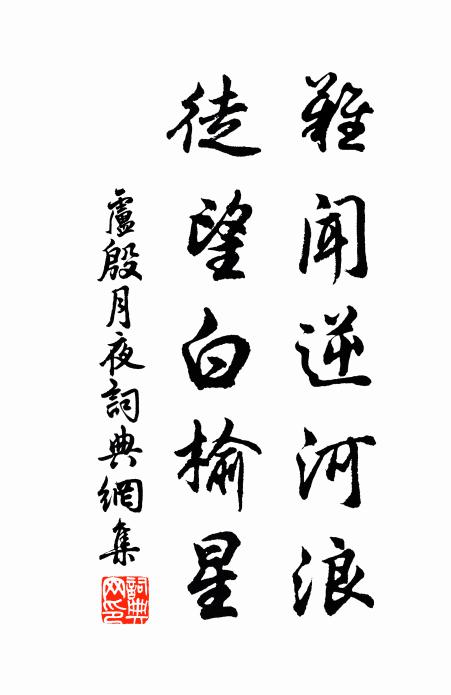 難聞逆河浪
徒望白榆星
盧殷月夜詞典網集
詞典網印